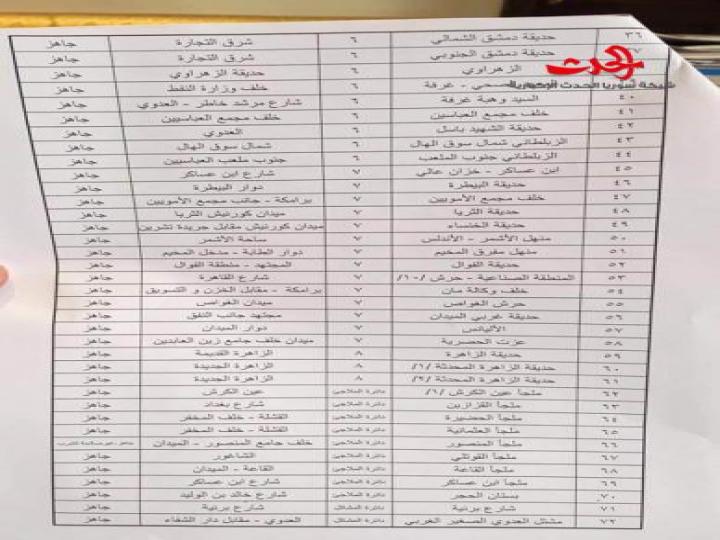 ٣٦ حديقة دمشق الشمالي ٦ شرق التجارة جاهز
٣٧ حديقة دمشق الجنوبي ٦ شرق التجارة جاهز
الزهراوي ٦ حديقة الزهراوي جاهز
الحدث
شبكة سوريا الحدث الإخبارية
الصحي - غرفة ٦ خلف وزارة النفط جاهز
٤٠ السيد وهبة غرفة ٦ شارع مرشد خاطر - العدوي جاهز
٤١ خلف مجمع العباسين ٦ خلف مجمع العباسيين جاهز
٤٢ حديقة الشهيد باسل ٦ العدوي جاهز
٤٣ الزبلطاني شمال سوق الهال ٦ شمال سوق الهال جاهز
٤٤ الزبلطاني جنوب الملعب ٦ جنوب ملعب العباسيين جاهز
٤٥ ابن عساكر - خزان عالي ٧ شارع ابن عساكر جاهز
٤٦ حديقة البيطرة ٧ دوار البيطرة جاهز
٤٧ خلف مجمع الأمويين ٧ برامكة - جانب مجمع الأمويين جاهز
٤٨ حديقة الثريا ٧ ميدان كورنيش الثريا جاهز
٤٩ حديقة الخنساء ٧ ميدان كورنيش مقابل جريدة تشرين جاهز
٥٠ منهل الأشمر - الأندلس ٧ ساحة الأشمر جاهز
٥١ منهل مفرق المخيم ٧ دوار الطابة - مدخل المخيم جاهز
٥٢ حديقة الفوال ٧ المجتهد - منطقة الفوال جاهز
٥٣ المنطقة الصناعية - حرش /١٠/ ٧ شارع القاهرة جاهز
٥٤ خلف وكالة مان ٧ برامكة - مقابل الخزن و التسويق جاهز
٥٥ حرش الغواص ٧ ميدان الغواص جاهز
٥٦ حديقة غربي الميدان ٧ مجتهد جانب النفق جاهز
٥٧ الأليانس ٧ دوار الميدان جاهز
٥٨ عزت الحصرية ٧ ميدان خلف جامع زين العابدين جاهز
٥٩ حديقة الزاهرة ٨ الزاهرة القديمة جاهز
٦٠ حديقة الزاهرة المحدثة /١/ ٨ الزاهرة الجديدة جاهز
٦١ حديقة الزاهرة المحدثة /٢/ ٨ الزاهرة الجديدة جاهز
٦٢ ملجأ عين الكرش /١/ دائرة الملاجئ عين الكرش جاهز
٦٣ ملجأ القزازين دائرة الملاجئ شارع بغداد جاهز
٦٤ ملجأ الحضيرة دائرة الملاجئ القشلة - خلف المخفر جاهز
٦٥ ملجأ العثمانية دائرة الملاجئ القشلة - خلف المخفر جاهز
٦٦ ملجأ المنصور دائرة الملاجئ خلف جامع المنصور - الميدان جاهز
٦٧ ملجأ القوتلي دائرة الملاجئ الشاغور جاهز
٦٨ ملجأ القاعة دائرة الملاجئ القاعة - الميدان جاهز
٦٩ ملجأ ابن عساكر دائرة الملاجئ شارع ابن عساكر جاهز
٧٠ بستان الحجر دائرة الملاجئ شارع خالد بن الوليد جاهز
٧١ شارع برنية دائرة المشاتل شارع برنية جاهز
٧٢ مشتل العدوي الصغير الغربي دائرة المشاتل العدوي - مقابل دار الشفاء جاهز